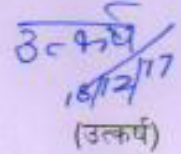 उत्कर्ष
18/12/17
(उत्कर्ष)